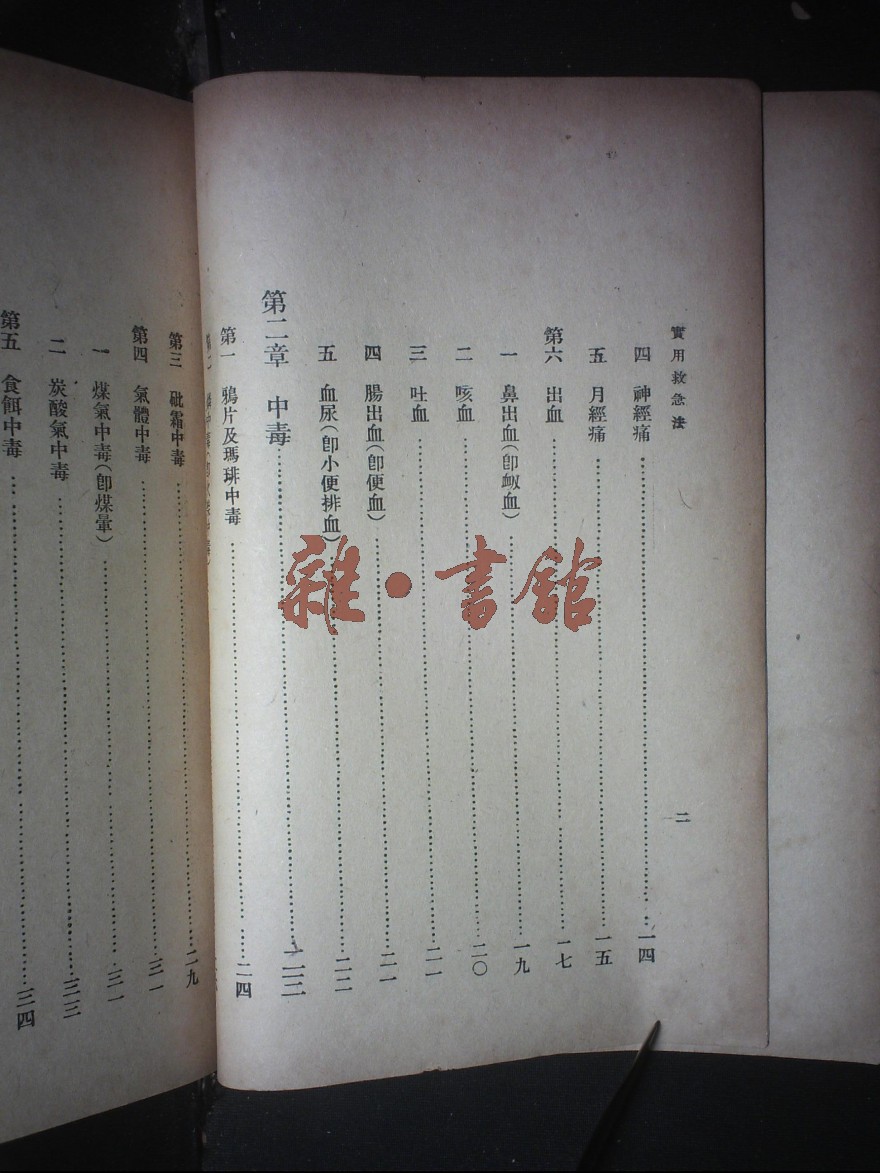 實用救急法
二
四 神經痛……一四
五 月經痛……一五
第六 出血……一七
一 鼻出血(卽衄血)……一九
二 咳血……二〇
三 吐血……二一
四 腸出血(卽便血)……二一
五 血尿(卽小便排血)……二二
第二章 中毒……二三
第一 鴉片及瑪琲中毒……二四
第三 砒霜中毒……二九
第四 氣體中毒……三一
一 煤氣中毒(卽煤暈)……三一
二 炭酸氣中毒……三三
第五 食餌中毒……三四
雜·書館